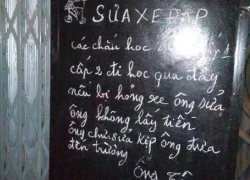 SỬA XE ĐẠP
các cháu học cấp 1
cấp 2 đi học qua đây
nếu bị hỏng xe ông sửa
ông không lấy tiền
ông chữa sửa kịp ông đưa
đến trường
Ông